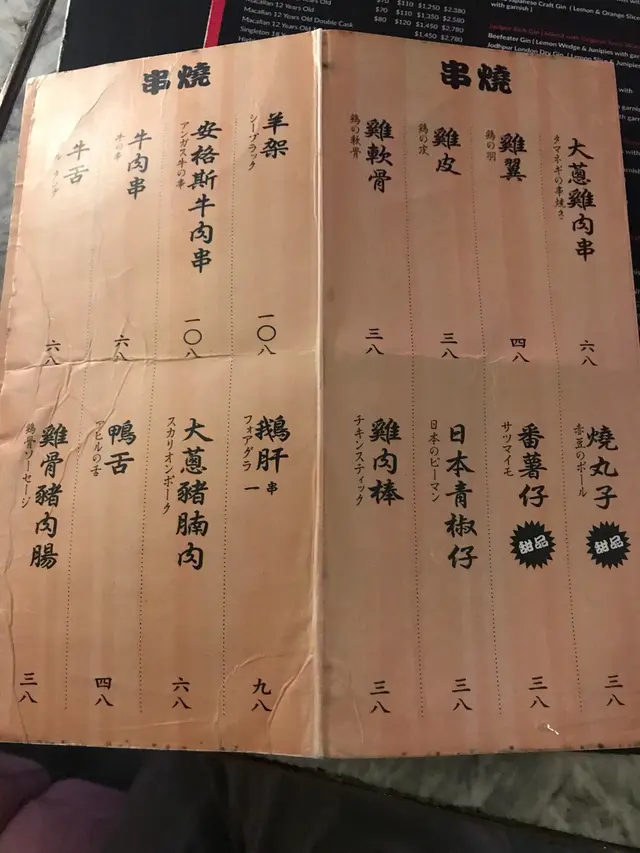 $70 $110 $1,250 $2,380
Macallan 12 Years Old $70 $110 $1,350 $2,580
Macallan 12 Years Old Double Cask $80 $120 $1,450 $2,780
$1,450 $2,780
Beefeater Gin ( Lemon Wedge & Junipies with
garnish )
串燒
大蔥雞肉串
タマネギの串焼き
六八
雞翼
鶏の羽
四八
雞皮
鶏の皮
三八
雞軟骨
鶏の軟骨
三八
燒丸子
赤豆のボール
甜品
三八
番薯仔
サツマイモ
甜品
三八
日本青椒仔
日本のピーマン
三八
雞肉棒
チキンスティック
三八
串燒
羊架
シープラック
一〇八
安格斯牛肉串
アンガス牛の串
一〇八
牛肉串
牛の串
六八
牛舌
六八
鵝肝一串
フォアグラ
九八
大蔥豬腩肉
スカリオンポーク
六八
鴨舌
アヒルの舌
四八
雞骨豬肉腸
鶏骨ソーセージ
三八